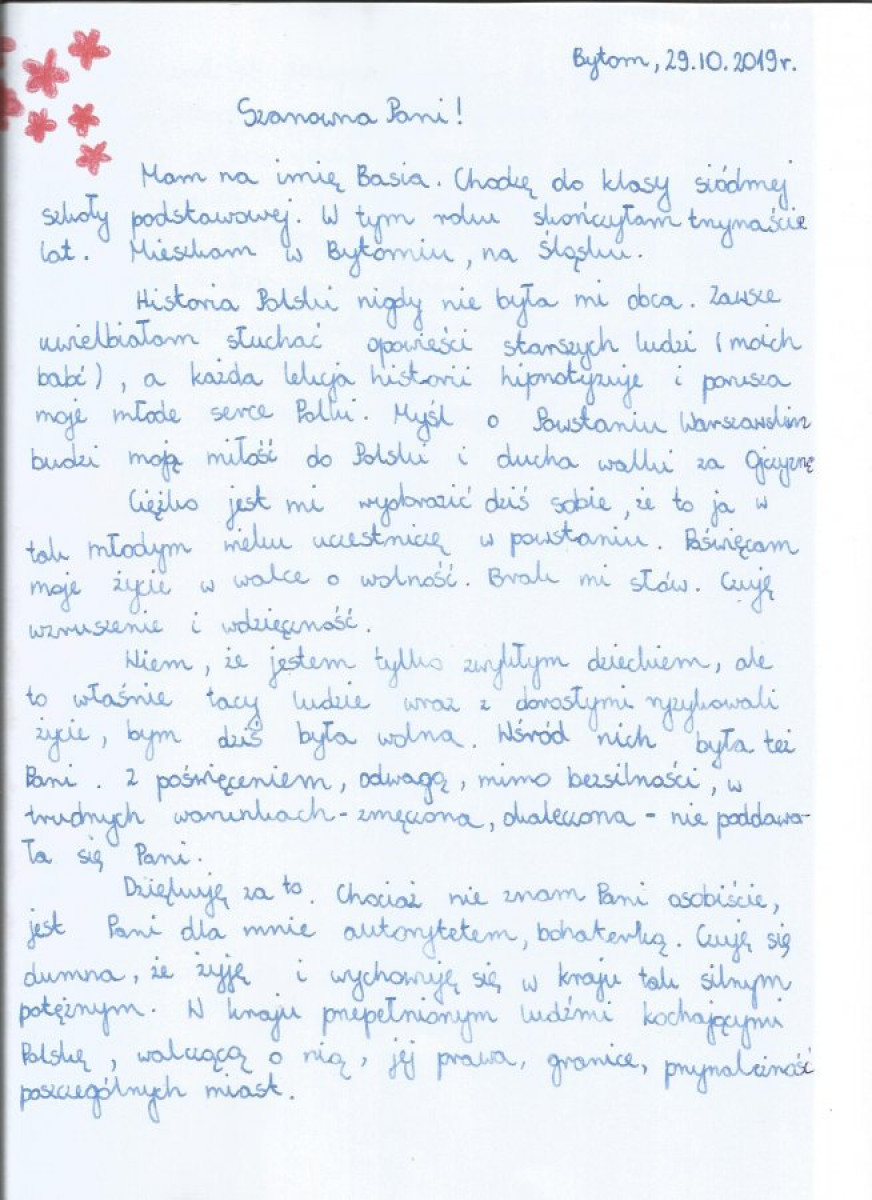 Bytom, 29.10.2019r.
Szanowna Pani!
Mam na imię Basia. Chodzę do klasy siódmej
szkoły podstawowej. W tym roku skończyłam trzynaście
lat. Mieszkam w Bytomiu, na Śląsku.
Historia Polski nigdy nie była mi obca. Zawsze
uwielbiałam słuchać opowieści starszych ludzi (moich
babć), a każda lekcja historii hipnotyzuje i porusza
moje młode serce Polki. Myśl o Powstaniu Warszawskim
budzi moją miłość do Polski i ducha walki za Ojczyznę
Ciężko jest mi wyobrazić dziś sobie, że to ja w
tak młodym wieku uczestniczę w powstaniu. Poświęcam
moje życie w walce o wolność. Brak mi słów. Czuję
wzruszenie i wdzięczność.
Wiem, że jestem tylko zwykłym dzieckiem, ale
to właśnie tacy ludzie wraz z dorosłymi ryzykowali
życie, bym dziś była wolna. Wśród nich była też
Pani. Z poświęceniem, odwagą, mimo bezsilności, w
trudnych warunkach - zmęczona, okaleczona - nie poddawa-
ła się Pani.
Dziękuję za to. Chociaż nie znam Pani osobiście,
jest Pani dla mnie autorytetem, bohaterką. Czuję się
dumna, że żyję i wychowuję się w kraju tak silnym
potężnym. W kraju przepełnionym ludźmi kochającymi
Polskę, walczącą o nią, jej prawa, granice, przynależność
poszczególnych miast.